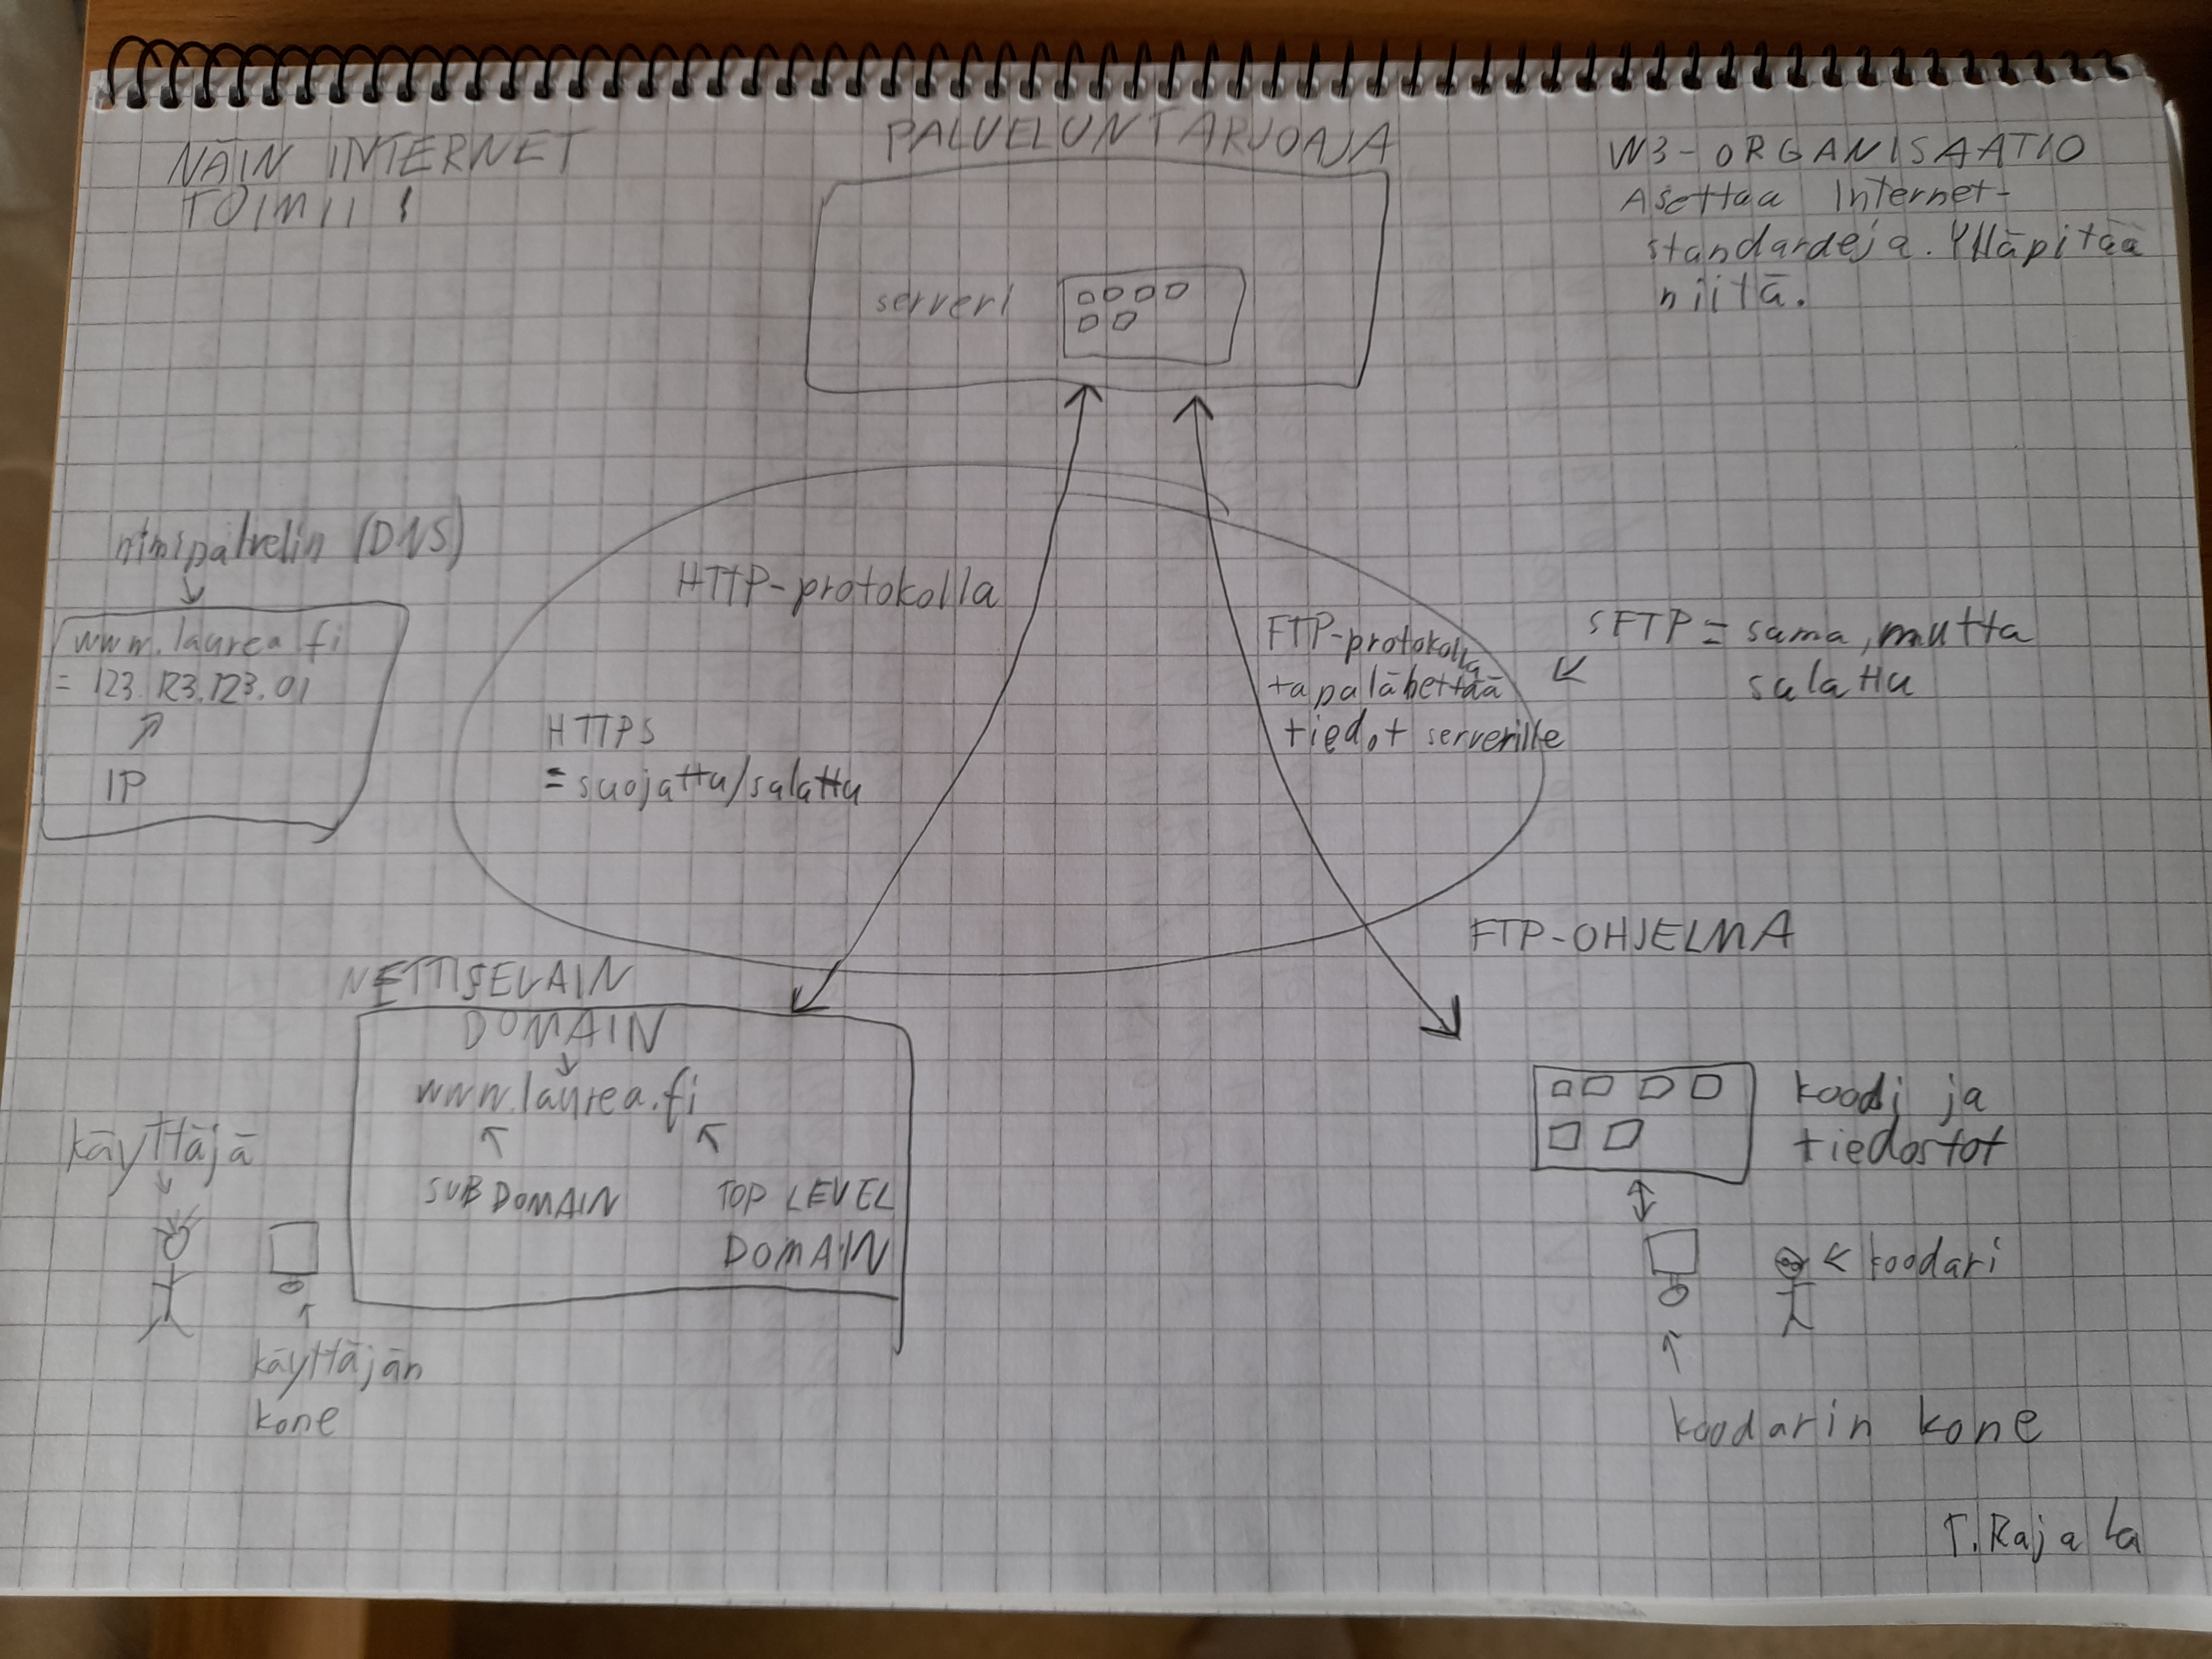 NÄIN INTERNET
TOIMII !
PALVELUNTARJOAJA
serveri
W3-ORGANISAATIO
Asettaa Internet-
standardeja. Ylläpitää
niitä.
nimipalvelin (DNS)
www.laurea.fi
= 123.123.123.01
IP
HTTP-protokolla
HTTPS
= suojattu/salattu
FTP-protokolla
tapa lähettää
tiedot serverille
SFTP = sama, mutta
salattu
NETTISELAIN
DOMAIN
www.laurea.fi
SUBDOMAIN
TOP LEVEL
DOMAIN
käyttäjä
käyttäjän
kone
FTP-OHJELMA
koodi ja
tiedostot
koodari
koodarin kone
T. Rajala